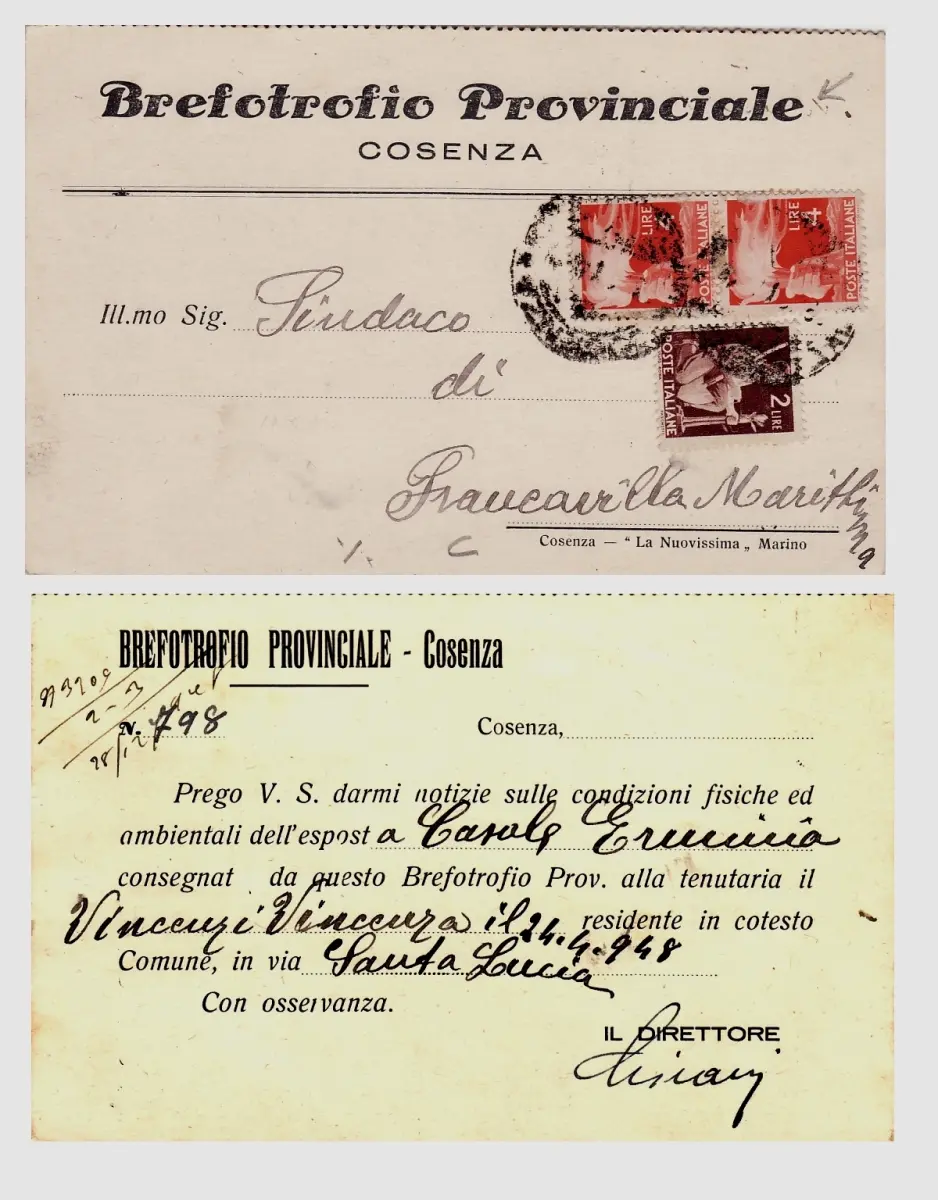 Brefotrofio Provinciale
COSENZA
LIRE 4 POSTE ITALIANE
LIRE 4 POSTE ITALIANE
Ill.mo Sig. Sindaco
di
POSTE ITALIANE 2 LIRE
Francavilla Marittima
Cosenza — “ La Nuovissima „ Marino
BREFOTROFIO PROVINCIALE - Cosenza
2-3
N. 798 Cosenza,
Prego V. S. darmi notizie sulle condizioni fisiche ed
ambientali dell'espost a Casole Erminia
consegnat da questo Brefotrofio Prov. alla tenutaria il
Vincenzi Vincenza il 24.4.948 residente in cotesto
Comune, in via Santa Lucia
Con osservanza.
IL DIRETTORE